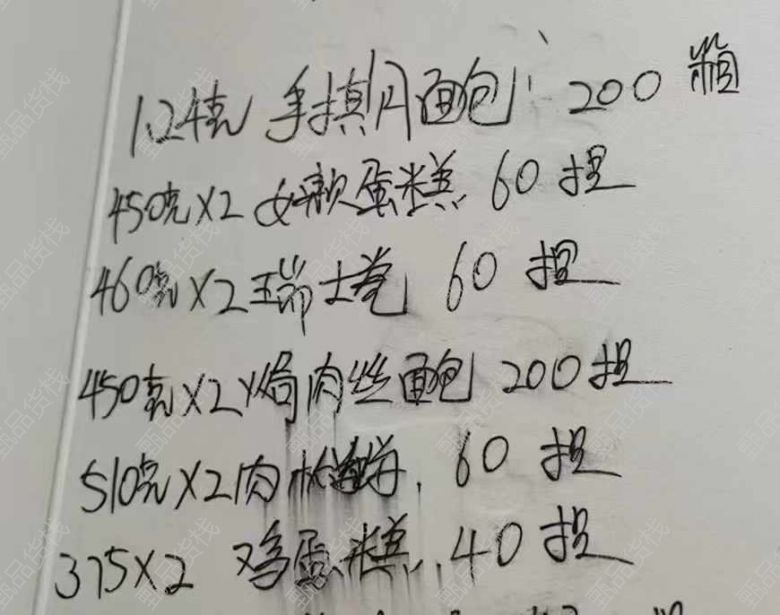 124克 手撕面包 200 箱
450克X2 女款蛋糕 60 提
460克X2 瑞士卷 60 提
450克X2 焗肉丝面包 200提
510克X2肉松 60 提
375X2 鸡蛋糕 40 提